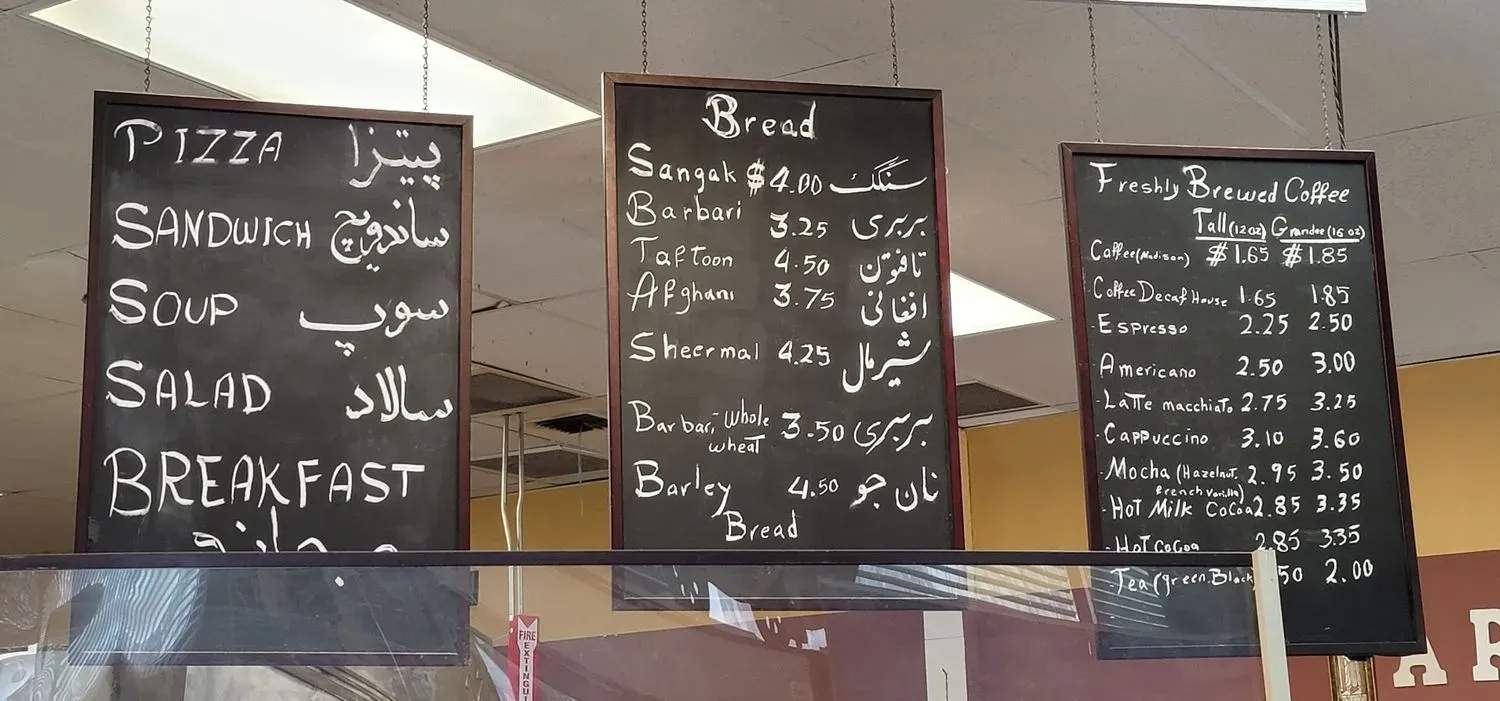 PIZZA پیتزا
SANDWICH ساندویچ
SOUP سوپ
SALAD سالاد
BREAKFAST
صبحانه
Bread
Sangak $4.00 سنگک
Barbari 3.25 بربری
Taftoon 4.50 تافتون
Afghani 3.75 افغانی
Sheermal 4.25 شیرمال
Barbari, whole wheat 3.50 بربری
Barley 4.50 نان جو
Bread
Freshly Brewed Coffee
Tall (12oz) Grandee (16 oz)
Caffee (Madison) $1.65 $1.85
Coffee Decaf House 1.65 1.85
·Espresso 2.25 2.50
·Americano 2.50 3.00
·Latte macchiato 2.75 3.25
·Cappuccino 3.10 3.60
·Mocha (Hazelnut, 2.95 3.50
French Vanilla)
·Hot Milk Cocoa 2.85 3.35
·Hot cocoa 2.85 3.35
·Tea (green, Black 50 2.00
FIRE
EXTINGUI
A